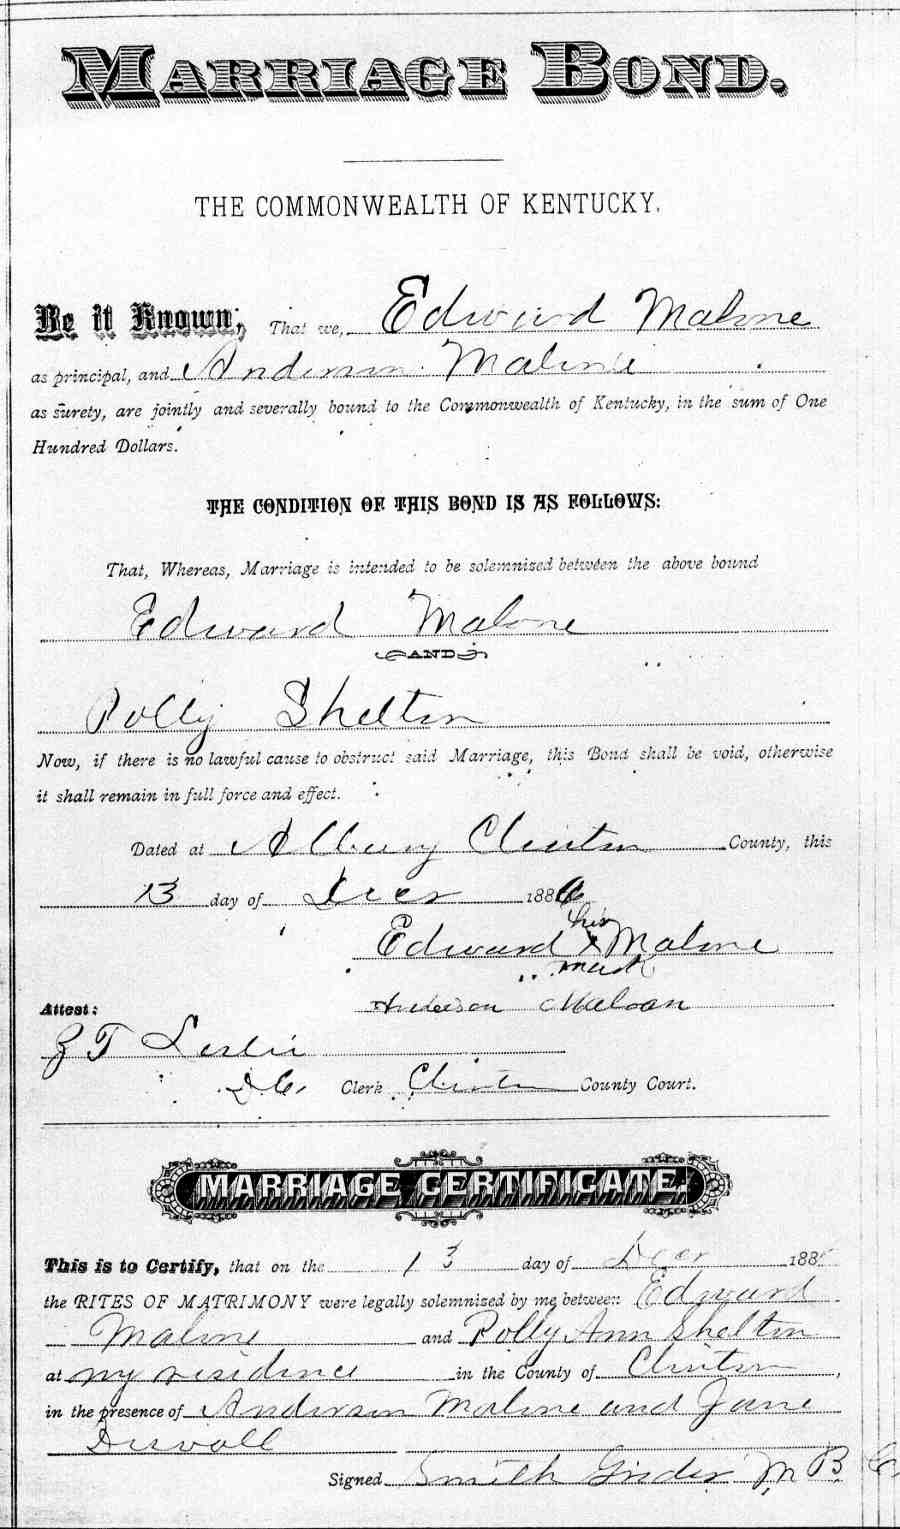 MARRIAGE BOND.
THE COMMONWEALTH OF KENTUCKY.
Be it Known; That we, Edward Malone
as principal, and Anderson Malone
as surety, are jointly and severally bound to the Commonwealth of Kentucky, in the sum of One
Hundred Dollars.
THE CONDITION OF THIS BOND IS AS FOLLOWS:
That, Whereas, Marriage is intended to be solemnized between the above bound
Edward Malone
AND
Polly Shelton
Now, if there is no lawful cause to obstruct said Marriage, this Bond shall be void, otherwise
it shall remain in full force and effect.
Dated at Albany Clinton County, this
13 day of Decr 1886
his
Edward X Malone
mark
Anderson Maloan
Attest:
Z T Leslie
D C, Clerk Clinton County Court.
MARRIAGE CERTIFICATE.
This is to Certify, that on the 13 day of Decr 188
the RITES OF MATRIMONY were legally solemnized by me between Edward
Malone and Polly Ann Shelton
at my residence in the County of Clinton,
in the presence of Anderson Malone and Jane
Duvall
Signed Smith Grider M B C